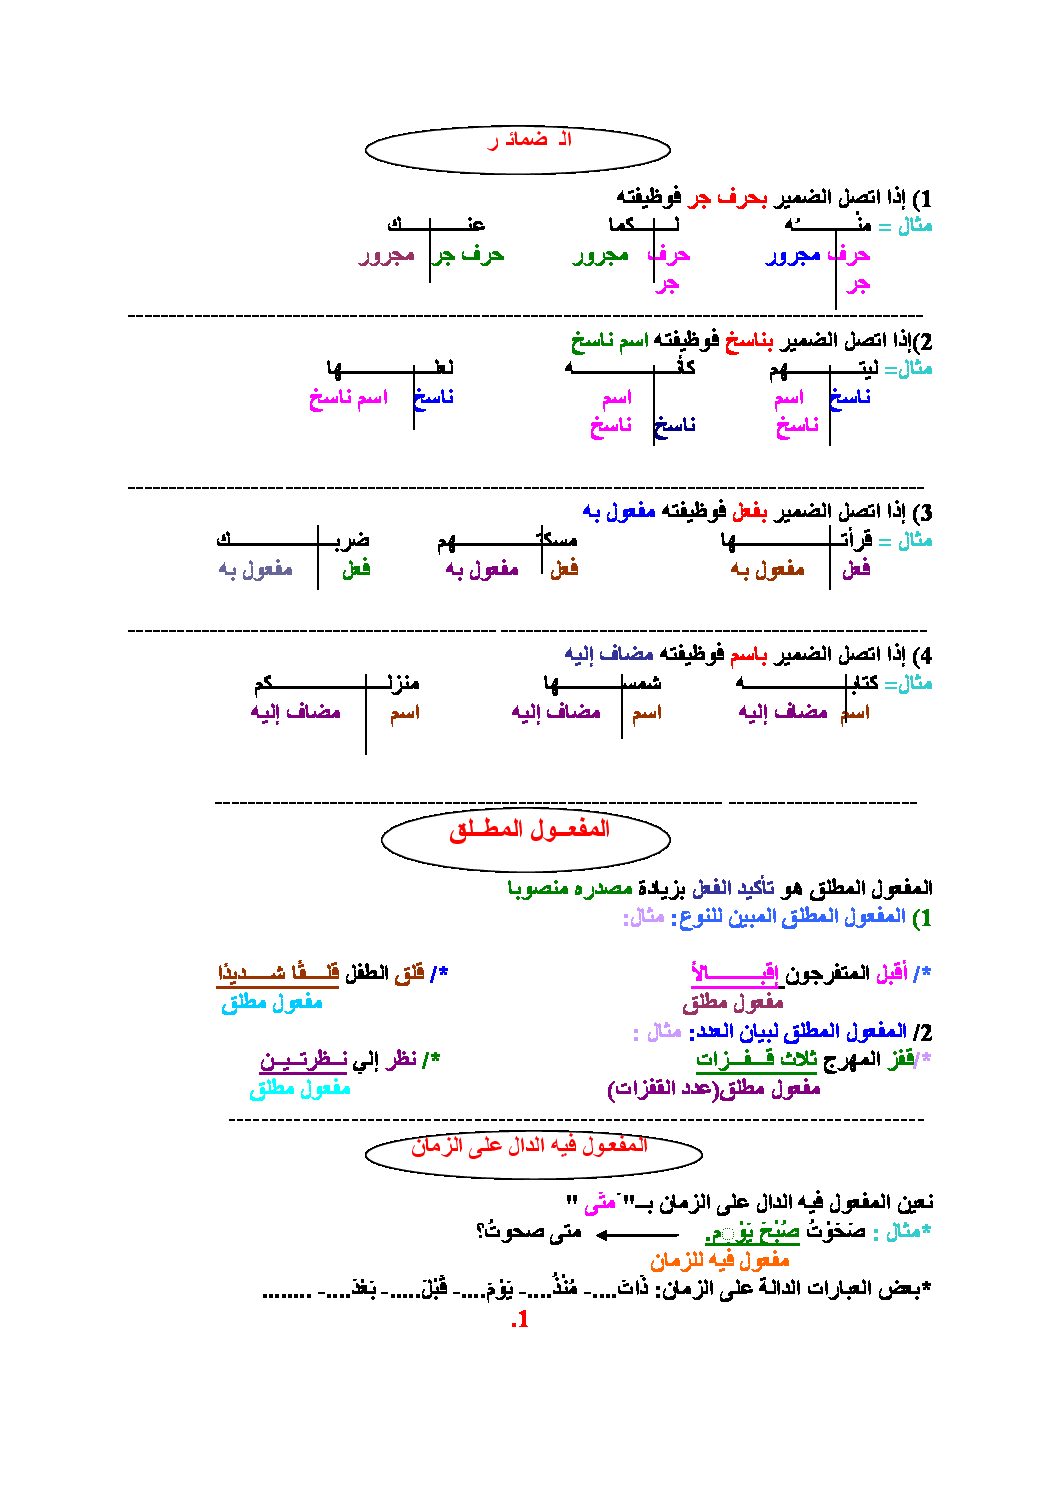 الـ ضمائـ ر
1) إذا اتصل الضمير بحرف جر فوظيفته
مثال = منْـــــــــــهُ لـــــــكما عنـــــــــــك
حرف مجرور حرف مجرور حرف جر مجرور
جر جر
2)إذا اتصل الضمير بناسخ فوظيفته اسم ناسخ
مثال= ليتـــــــــــهم كأنـــــــــــــه لعلـــــــــــــها
ناسخ اسم اسم ناسخ اسم ناسخ
ناسخ ناسخ ناسخ
3) إذا اتصل الضمير بفعل فوظيفته مفعول به
مثال = قرأتـــــــــــــها مسكتـــــــــــــهم ضربـــــــــــــك
فعل مفعول به فعل مفعول به فعل مفعول به
4) إذا اتصل الضمير باسم فوظيفته مضاف إليه
مثال= كتابـــــــــــــه شمســـــــــها منزلـــــــــــــكم
اسم مضاف إليه اسم مضاف إليه اسم مضاف إليه
المفعــول المطــلق
المفعول المطلق هو تأكيد الفعل بزيادة مصدره منصوبا
1) المفعول المطلق المبين للنوع: مثال:
*/ أقبل المتفرجون إقبـــــــالاً */ قلق الطفل قلــــقًا شـــــديدًا
مفعول مطلق مفعول مطلق
2/ المفعول المطلق لبيان العدد: مثال :
*/قفز المهرج ثلاث قــفــــزات */ نظر إلي نــظرتــيــن
مفعول مطلق(عدد القفزات) مفعول مطلق
المفعـول فيه الدال على الزمان
نعين المفعول فيه الدال على الزمان بــ" َمتَى "
*مثال : صَحَوْتُ صُبْحَ يَوْمٍ. متى صحوتُ؟
مفعول فيه للزمان
*بعض العبارات الدالة على الزمان: ذَاتَ....- مُنْذُ....- يَوْمَ....- قَبْلَ.....- بَعْدَ....- ........
1.